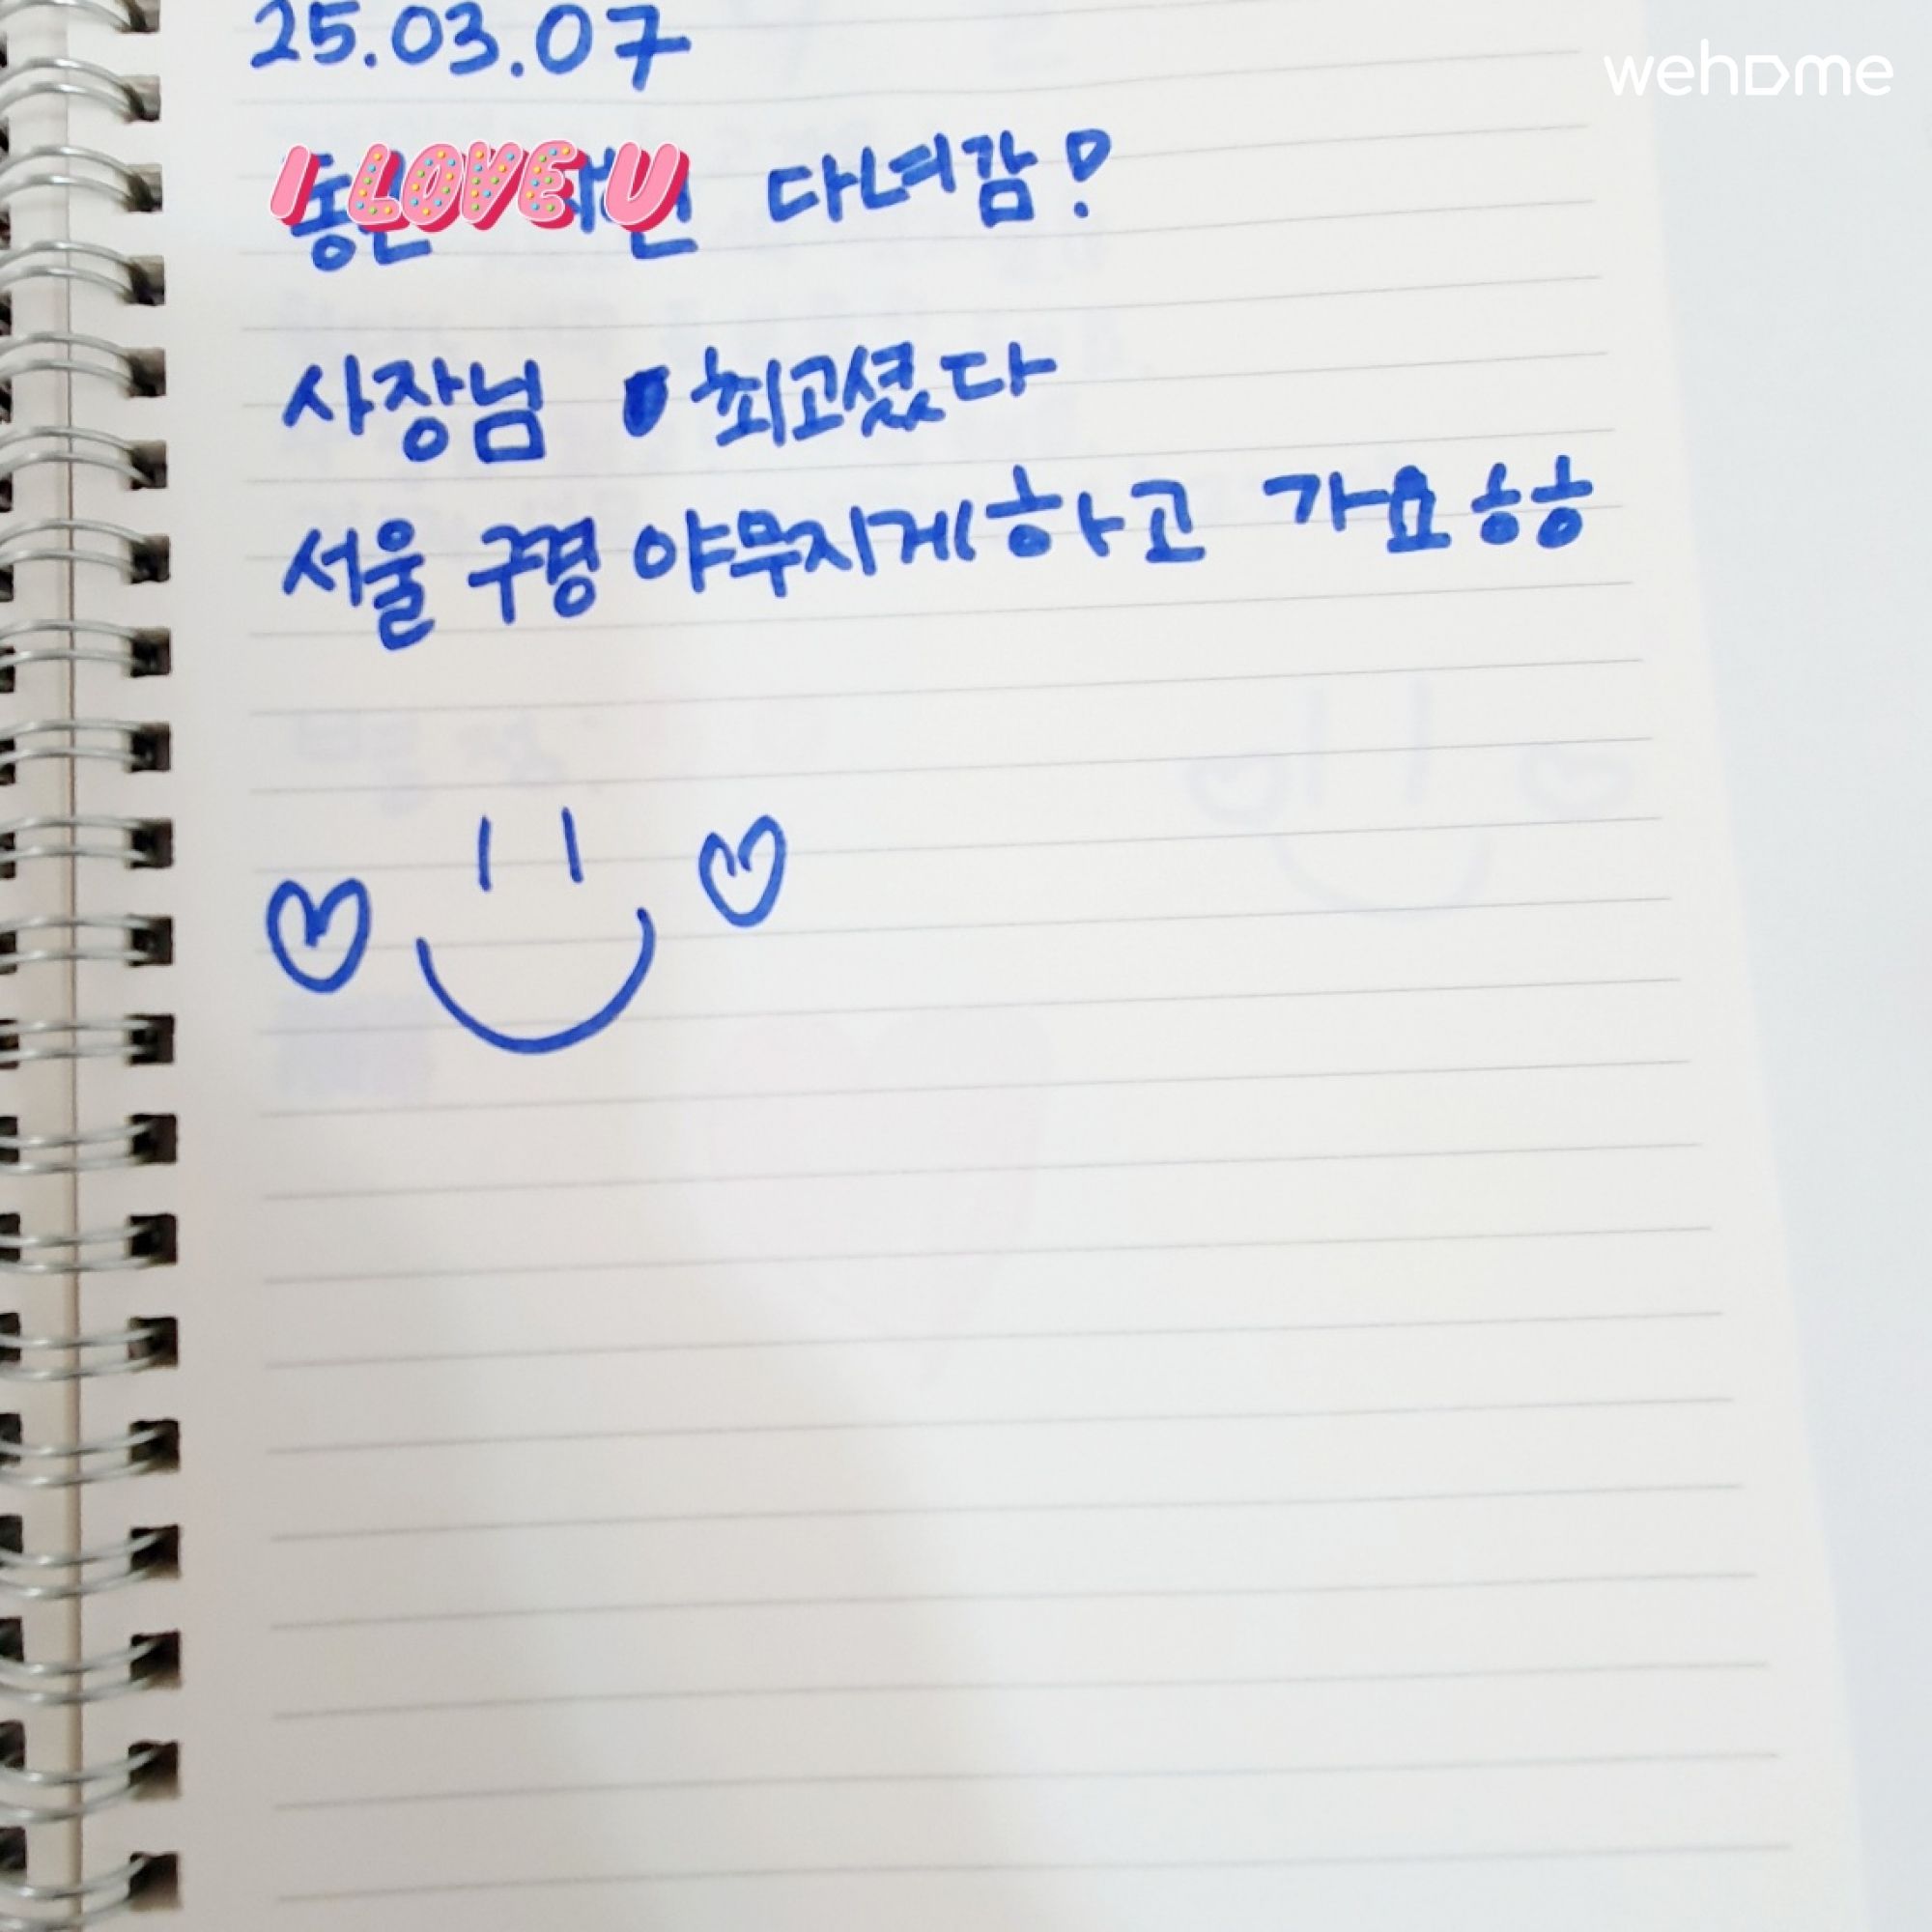 25.03.07
wehome
I LOVE U 다녀감!
사장님 최고셨다
서울 구경 야무지게하고 가요 ㅎㅎ